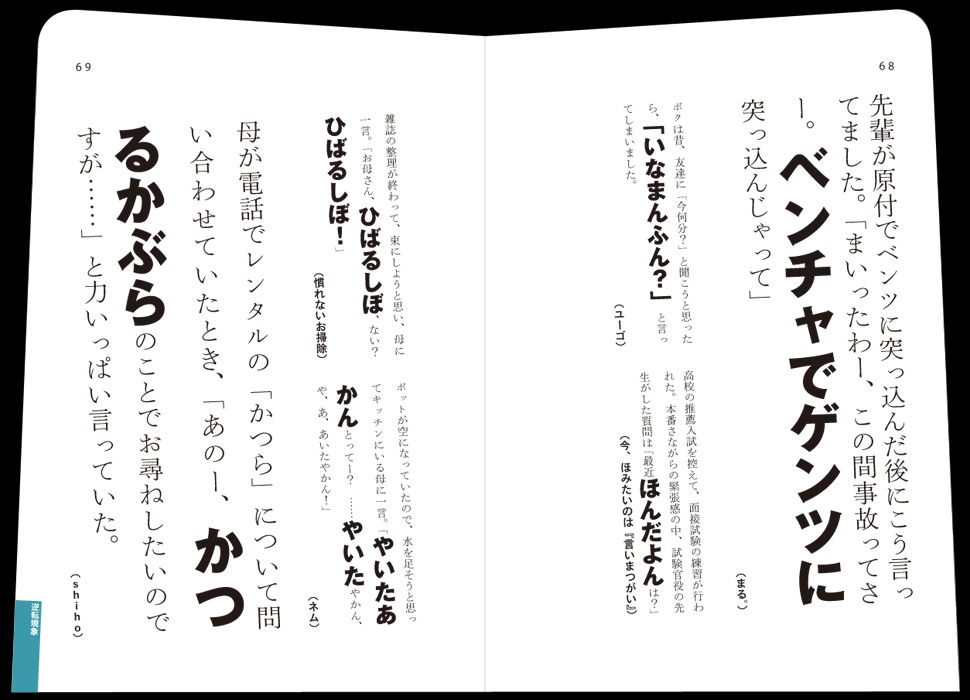 68
先輩が原付でベンツに突っ込んだ後にこう言っ
てました。「まいったわー、この間事故ってさ
ー。ベンチャでゲンツに
突っ込んじゃって」
(まる。)
ボクは昔、友達に「今何分?」と聞こうと思った
ら、「いなまんふん?」と言っ
てしまいました。
(ユーゴ)
高校の推薦入試を控えて、面接試験の練習が行わ
れた。本番さながらの緊張感の中、試験官役の先
生がした質問は「最近ほんだよんは?」
(今、ほみたいのは『言いまつがい』)
69
雑誌の整理が終わって、束にしようと思い、母に
一言。「お母さん、ひばるしぼ、ない?
ひばるしぼ!」
(慣れないお掃除)
ポットが空になっていたので、水を足そうと思っ
てキッチンにいる母に一言。「やいたあ
かんとってー? ……やいたやかん、
や、あ、あいたやかん!」
(ネム)
母が電話でレンタルの「かつら」について問
い合わせていたとき、「あのー、かつ
るかぶらのことでお尋ねしたいので
すが……」と力いっぱい言っていた。
(shiho)
逆転現象